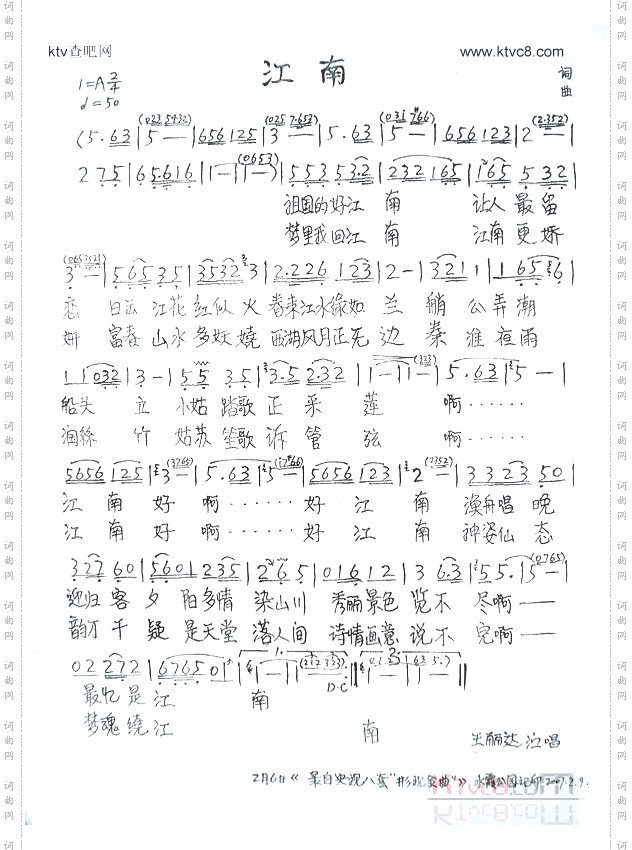 ktv查吧网 www.ktvc8.com
江 南
词
曲
1=A 2/4
♩=50
(5.63|5—|656 125|3—|5.63|5—|656 123|2—|
2 75|65.616|1—|1—)|553 53.2|232 165|165 532|
祖国的好江 南 让人 最 留
梦里我回江 南 江南 更 娇
3—|565 35|3532 3|2.226 123|2—|321 1|1 65 6|
恋 白云 江花 红似 火 春来江水绿如 兰 艄 公弄潮
妍 富春 山水 多妖 娆 西湖风月正无 边 秦 淮夜雨
11 032|3—|55 35|3.5 2.32|1—|1—|5.63|5—|
船头 立 小姑 踏歌 正 采 莲 啊······
润丝 竹 姑苏 笙歌 诉 管 弦 啊······
5656 125|3—|5.63|5—|5656 123|2—|33 23 50|
江 南 好 啊······ 好 江 南 渔舟唱 晚
江 南 好 啊······ 好 江 南 神姿仙 态
327 60|5601 235|265|0161 2|3 6.3|55.|5—|
迎归 客 夕 阳多情 染山川 秀丽景色 览不 尽啊——
韵 千 疑 是天堂 落人间 诗情画意 说不 完啊——
02 272|6765 0|
D.C
最忆 是 江 南
梦魂 绕 江 南
王丽达 演唱
2月6日 2007.2.9.
KTVC8.COM
词曲网